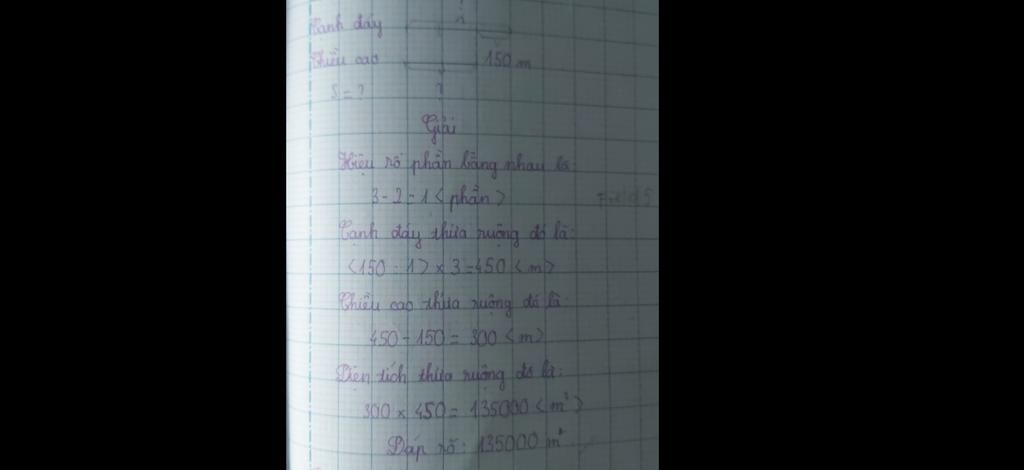 ?
Cạnh đáy
Chiều cao 150 m
S = ? ?
Giải
Hiệu số phần bằng nhau là:
3 - 2 = 1 < phần >
Cạnh đáy thửa ruộng đó là:
<150 : 1> × 3 = 450 < m >
Chiều cao thửa ruộng đó là:
450 - 150 = 300 < m >
Diện tích thửa ruộng đó là:
300 × 450 = 135000 < m² >
Đáp số: 135000 m²